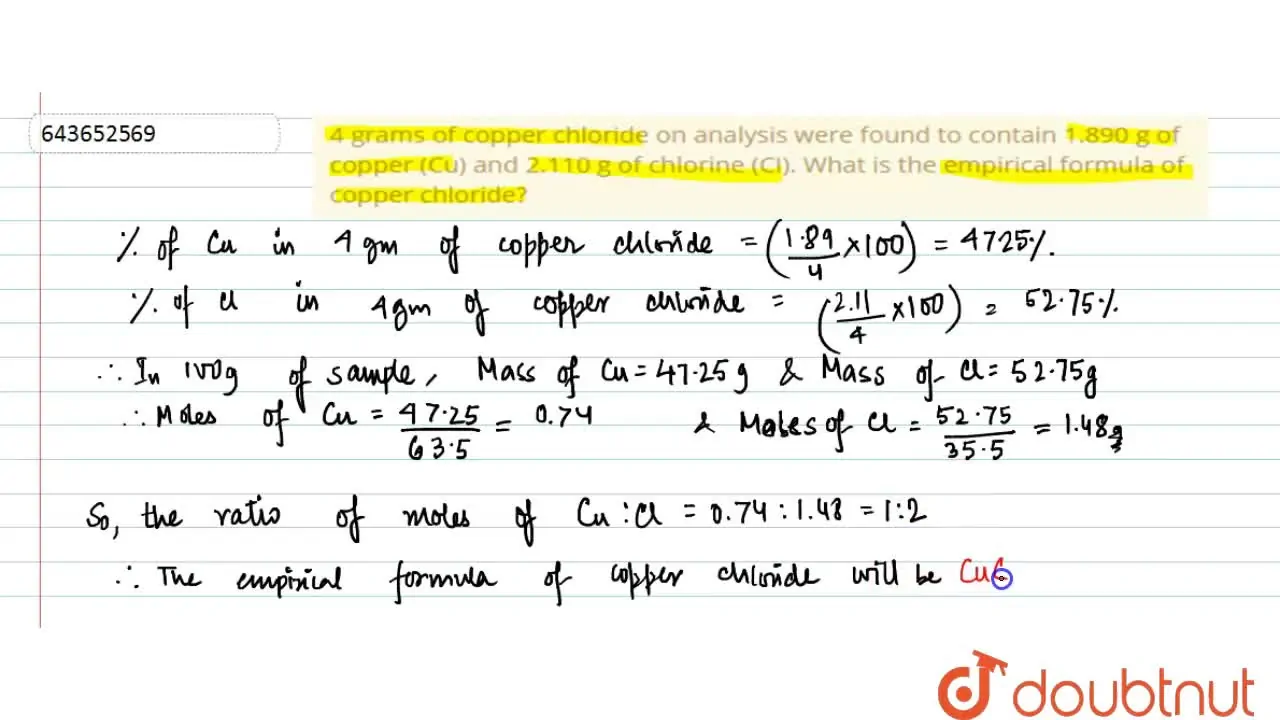 643652569
4 grams of copper chloride on analysis were found to contain 1.890 g of
copper (Cu) and 2.110 g of chlorine (Cl). What is the empirical formula of
copper chloride?
% of Cu in 4 gm of copper chloride = (1.89/4 × 100) = 4725%.
% of Cl in 4gm of copper chloride = (2.11/4 × 100) = 52.75%
∴ In 100g of sample, Mass of Cu = 47.25 g & Mass of Cl = 52.75g
∴ Moles of Cu = 47.25/63.5 = 0.74 & Moles of Cl = 52.75/35.5 = 1.48
So, the ratio of moles of Cu : Cl = 0.74 : 1.48 = 1:2
∴ The empirical formula of copper chloride will be CuC
doubtnut